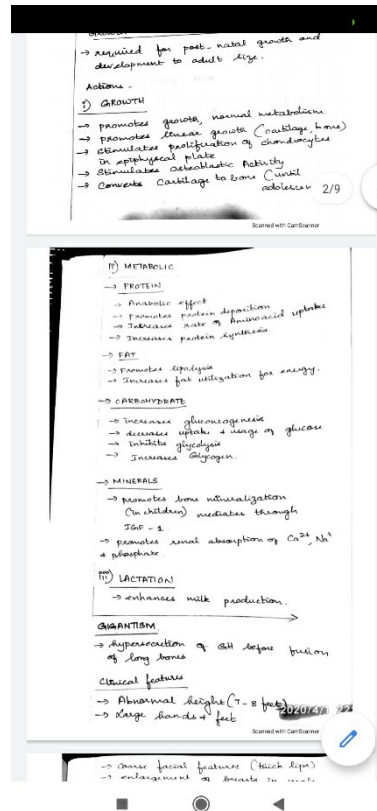 → required for post-natal growth and
development to adult size.
Actions -
i) GROWTH
→ promotes growth, normal metabolism
→ promotes linear growth (cartilage, bone)
→ stimulates proliferation of chondrocytes
in epiphyseal plate
→ stimulates osteoblastic Activity
→ converts cartilage to bone (until
adolescen
2/9
Scanned with CamScanner
ii) METABOLIC
→ PROTEIN
→ Anabolic effect
→ Promotes protein deposition
→ Increases rate of Aminoacid uptake
→ Increases protein synthesis
→ FAT
→ Promotes lipolysis
→ Increases fat utilization for energy.
→ CARBOHYDRATE
→ increases gluconeogenesis
→ decreases uptake & usage of glucose
→ inhibits glycolysis
→ Increases Glycogen.
→ MINERALS
→ promotes bone mineralization
(in children) mediates through
IGF-1
→ promotes renal absorption of Ca²⁺, Na⁺
& phosphate.
iii) LACTATION
→ enhances milk production.
GIGANTISM
→ hypersecretion of GH before fusion
of long bones
Clinical features
→ Abnormal height (7-8 feet)
→ Large hands & feet
2020/4/1 22
Scanned with CamScanner
→ Coarse facial features (thick lips)
→ enlargement of breasts in